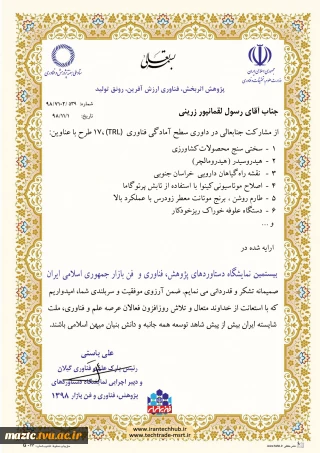 بسمه تعالی
جمهوری اسلامی ایران
وزارت علوم، تحقیقات و فناوری
پژوهش اثربخش، فناوری ارزش آفرین، رونق تولید
شماره: ۹۸/۷۱۰۲/۵۳۹
تاریخ: ۹۸/۱۱/۱
جناب آقای رسول لقمانپور زرینی
از مشارکت جنابعالی در داوری سطح آمادگی فناوری (TRL) ،۱۷ طرح با عناوین:
۱ - سختی سنج محصولات کشاورزی
۲ - هیدروسیدر (هیدرومالچر)
۳ - نقشه راه گیاهان دارویی خراسان جنوبی
۴ - اصلاح موتاسیونی کینوا با استفاده از تابش پرتو گاما
۵ - طارم روشن ، برنج موتانت معطر زودرس با عملکرد بالا
۶ - دستگاه علوفه خوراک ریزخودکار
و ...
ارایه شده در
بیستمین نمایشگاه دستاوردهای پژوهش، فناوری و فن بازار جمهوری اسلامی ایران
صمیمانه تشکر و قدردانی می نمایم. ضمن آرزوی موفقیت و سربلندی شما، امیدواریم
که با استعانت از خداوند متعال و تلاش روزافزون فعالان عرصه علم و فناوری، ملت
شایسته ایران بیش از پیش شاهد توسعه همه جانبه و دانش بنیان میهن اسلامی باشند.
علی باستی
رئیس پارک علم و فناوری گیلان
و دبیر اجرایی نمایشگاه دستاوردهای
پژوهش، فناوری و فن بازار ۱۳۹۸
www.irantechhub.ir
www.techtrade-msrt.ir
mazic.tvu.ac.ir